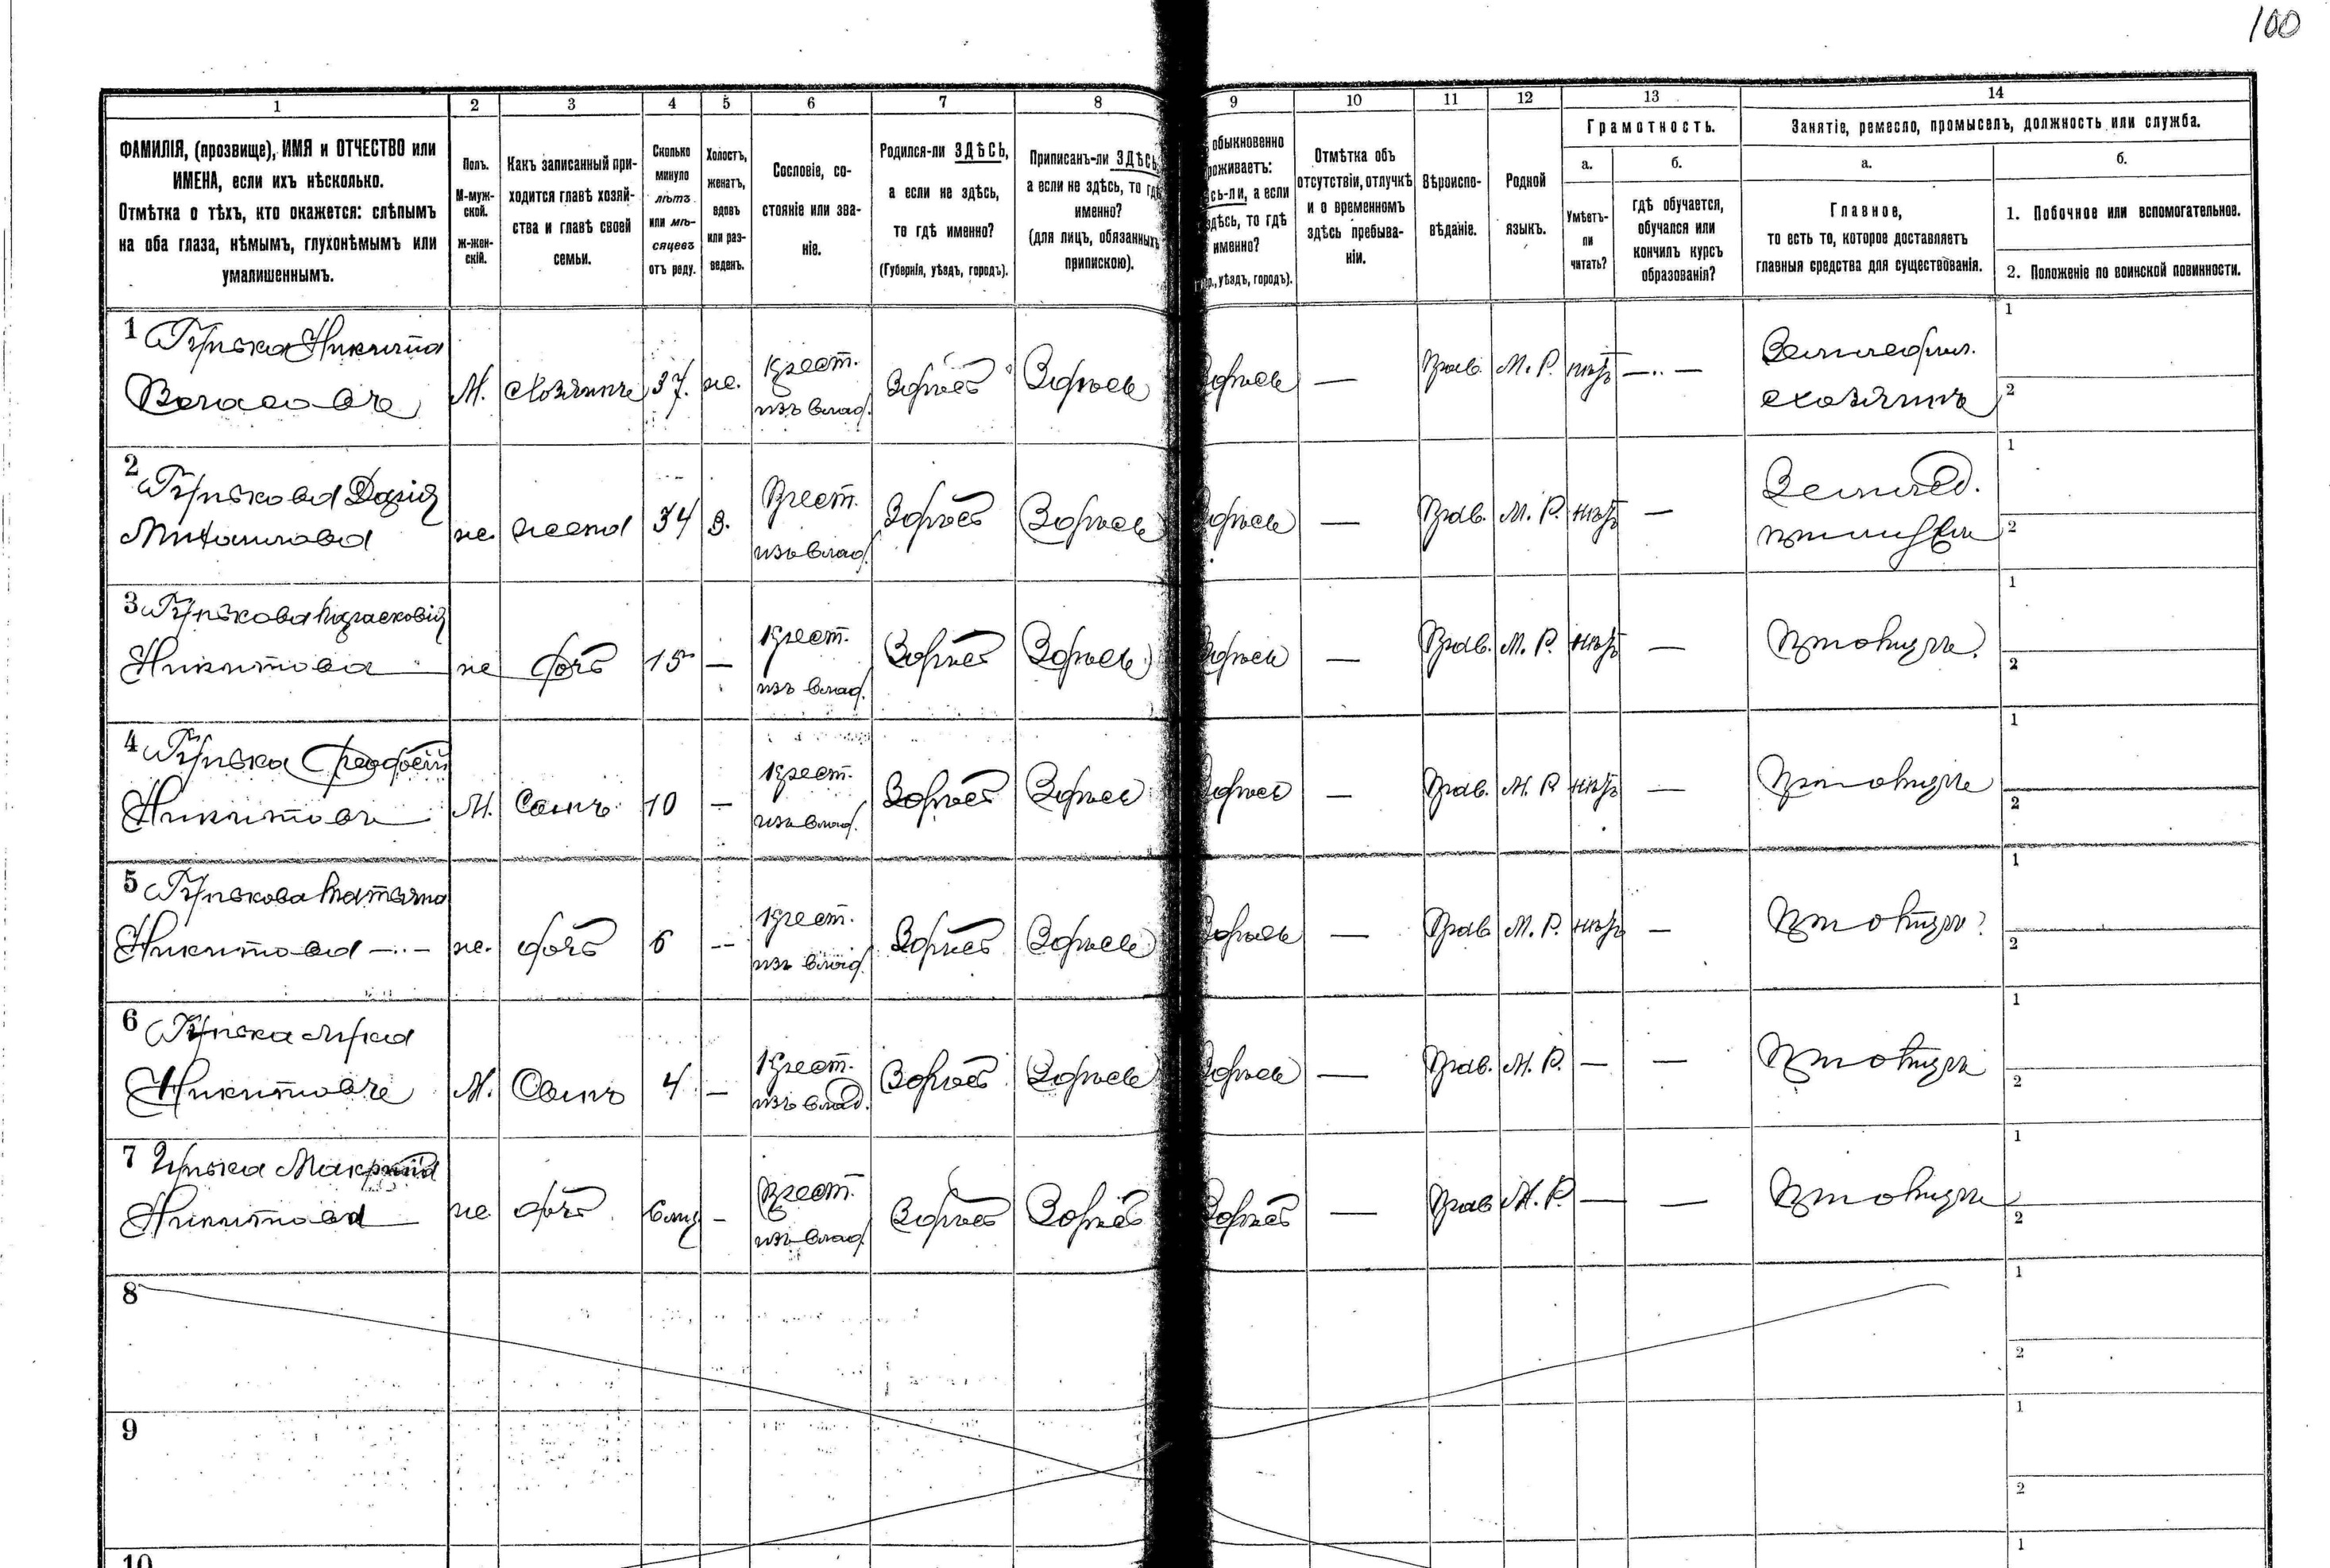 100
1 2 3 4 5 6 7 8 9 10 11 12 13 14
ФАМИЛІЯ, (прозвище), ИМЯ и ОТЧЕСТВО или
ИМЕНА, если ихъ нѣсколько.
Отмѣтка о тѣхъ, кто окажется: слѣпымъ
на оба глаза, нѣмымъ, глухонѣмымъ или
умалишеннымъ.
Полъ.
М-муж-
ской.
Ж-жен-
скій.
Какъ записанный при-
ходится главѣ хозяй-
ства и главѣ своей
семьи.
Сколько
минуло
лѣтъ
или мѣ-
сяцевъ
отъ роду.
Холостъ,
женатъ,
вдовъ
или раз-
веденъ.
Сословіе, со-
стояніе или зва-
ніе.
Родился-ли ЗДѢСЬ,
а если не здѣсь,
то гдѣ именно?
(Губернія, уѣздъ, городъ).
Приписанъ-ли ЗДѢСЬ,
а если не здѣсь, то гдѣ
именно?
(для лицъ, обязанныхъ
припискою).
обыкновенно
роживаетъ:
сь-ли, а если
здѣсь, то гдѣ
именно?
уѣздъ, городъ).
Отмѣтка объ
отсутствіи, отлучкѣ
и о временномъ
здѣсь пребыва-
ніи.
Вѣроиспо-
вѣданіе.
Родной
языкъ.
Грамотность.
а.
Умѣетъ-
ли
читать?
б.
гдѣ обучается,
обучался или
кончилъ курсъ
образованія?
Занятіе, ремесло, промыселъ, должность или служба.
а.
Главное,
то есть то, которое доставляетъ
главныя средства для существованія.
б.
1. Побочное или вспомогательное.
2. Положеніе по воинской повинности.
1 Никита
Власовъ М. Хозяинъ 37. ж. Крест. изъ влад. Здѣсь Здѣсь здѣсь — Прав. М. Р. нѣтъ — — Землед. хозяинъ 1 2
2 Дарія
ж. жена 34 з. Крест. изъ влад. Здѣсь Здѣсь здѣсь — Прав. М. Р. нѣтъ — Землед. 1 2
3 Парасковія
Никитова ж дочь 15 — Крест. изъ влад. Здѣсь Здѣсь здѣсь — Прав. М. Р. нѣтъ — при отцѣ. 1 2
4
Никитовъ М. Сынъ 10 — Крест. изъ влад. Здѣсь Здѣсь здѣсь — Прав. М. Р. нѣтъ — при отцѣ 1 2
5 Татьяна
Никитова ж. дочь 6 — Крест. изъ влад. Здѣсь Здѣсь здѣсь — Прав. М. Р. нѣтъ — при отцѣ 1 2
6
Никитовъ М. Сынъ 4 — Крест. изъ влад. Здѣсь Здѣсь здѣсь — Прав. М. Р. — — при отцѣ 1 2
7
Никитова ж дочь 6 мц — Крест. изъ влад. Здѣсь Здѣсь здѣсь — Прав М. Р. — — при отцѣ 1 2
8 1 2
9 1 2
10 1